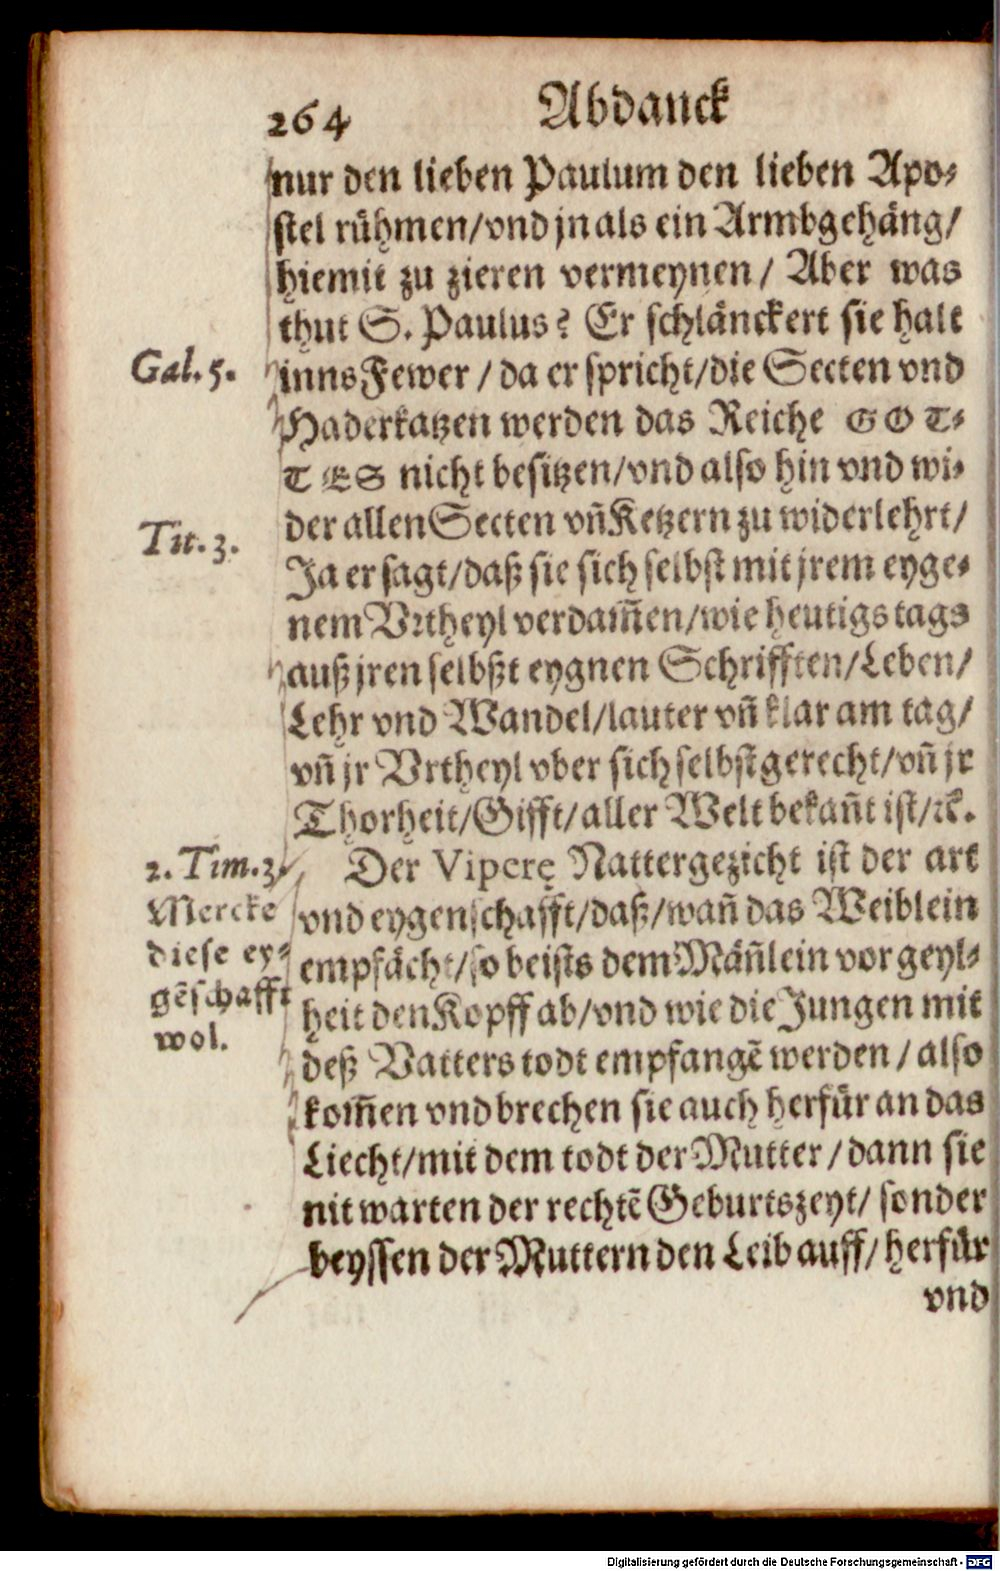 264 Abdanck
nur den lieben Paulum den lieben Apo-
stel rühmen/vnd jn als ein Armbgehäng/
hiemit zu zieren vermeynen/ Aber was
thut S. Paulus? Er schlänckert sie halt
Gal. 5.
inns Fewer / da er spricht/die Secten vnd
Haderkatzen werden das Reiche GOT-
TES nicht besitzen/vnd also hin vnd wi-
der allen Secten vñ Ketzern zu wider lehrt/
Tit. 3.
Ja er sagt/daß sie sich selbst mit jrem eyge-
nem Vrtheyl verdam̃en/wie heutigs tags
auß jren selbßt eygnen Schrifften/Leben/
Lehr vnd Wandel/lauter vñ klar am tag/
vñ jr Vrtheyl vber sich selbst gerecht/vñ jr
Thorheit/Gifft/aller Welt bekañt ist/ꝛc.
2. Tim. 3.
Mercke
diese ey-
gẽschafft
wol.
Der Viperę Nattergezicht ist der art
vnd eygenschafft/daß/wañ das Weiblein
empfächt/so beists dem Mäñlein vor geyl-
heit den Kopff ab/vnd wie die Jungen mit
deß Vatters todt empfangẽ werden / also
kom̃en vnd brechen sie auch herfür an das
Liecht/mit dem todt der Mutter / dann sie
nit warten der rechtẽ Geburtszeyt/ sonder
beyssen der Muttern den Leib auff/ herfür
vnd
Digitalisierung gefördert durch die Deutsche Forschungsgemeinschaft - DFG